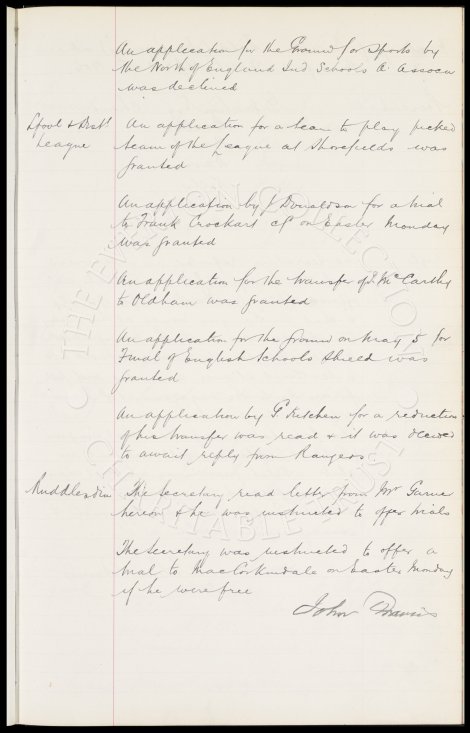 An application for the Ground for Sports by
the North of England Ind Schools A. Assocn
was declined
Lpool & Dist
League
An application for a team to play picked
team of the League at Shorefields was
granted
An application by J Donaldson for a trial
to Frank Crockart cf on Easter Monday
was granted
An application for the transfer of McCarthy
to Oldham was granted
An application for the ground on May 5 for
Final of English Schools Shield was
granted
An application by G. Kitchen for a reduction
of his transfer was read & it was decided
to await reply from Rangers
The Secretary read letter from Mr Garner
hereon & he was instructed to offer trials
The Secretary was instructed to offer a
trial to MacCorkindale on Easter Monday
if he were free
John
THE EVERTON COLLECTION
CHARITABLE TRUST